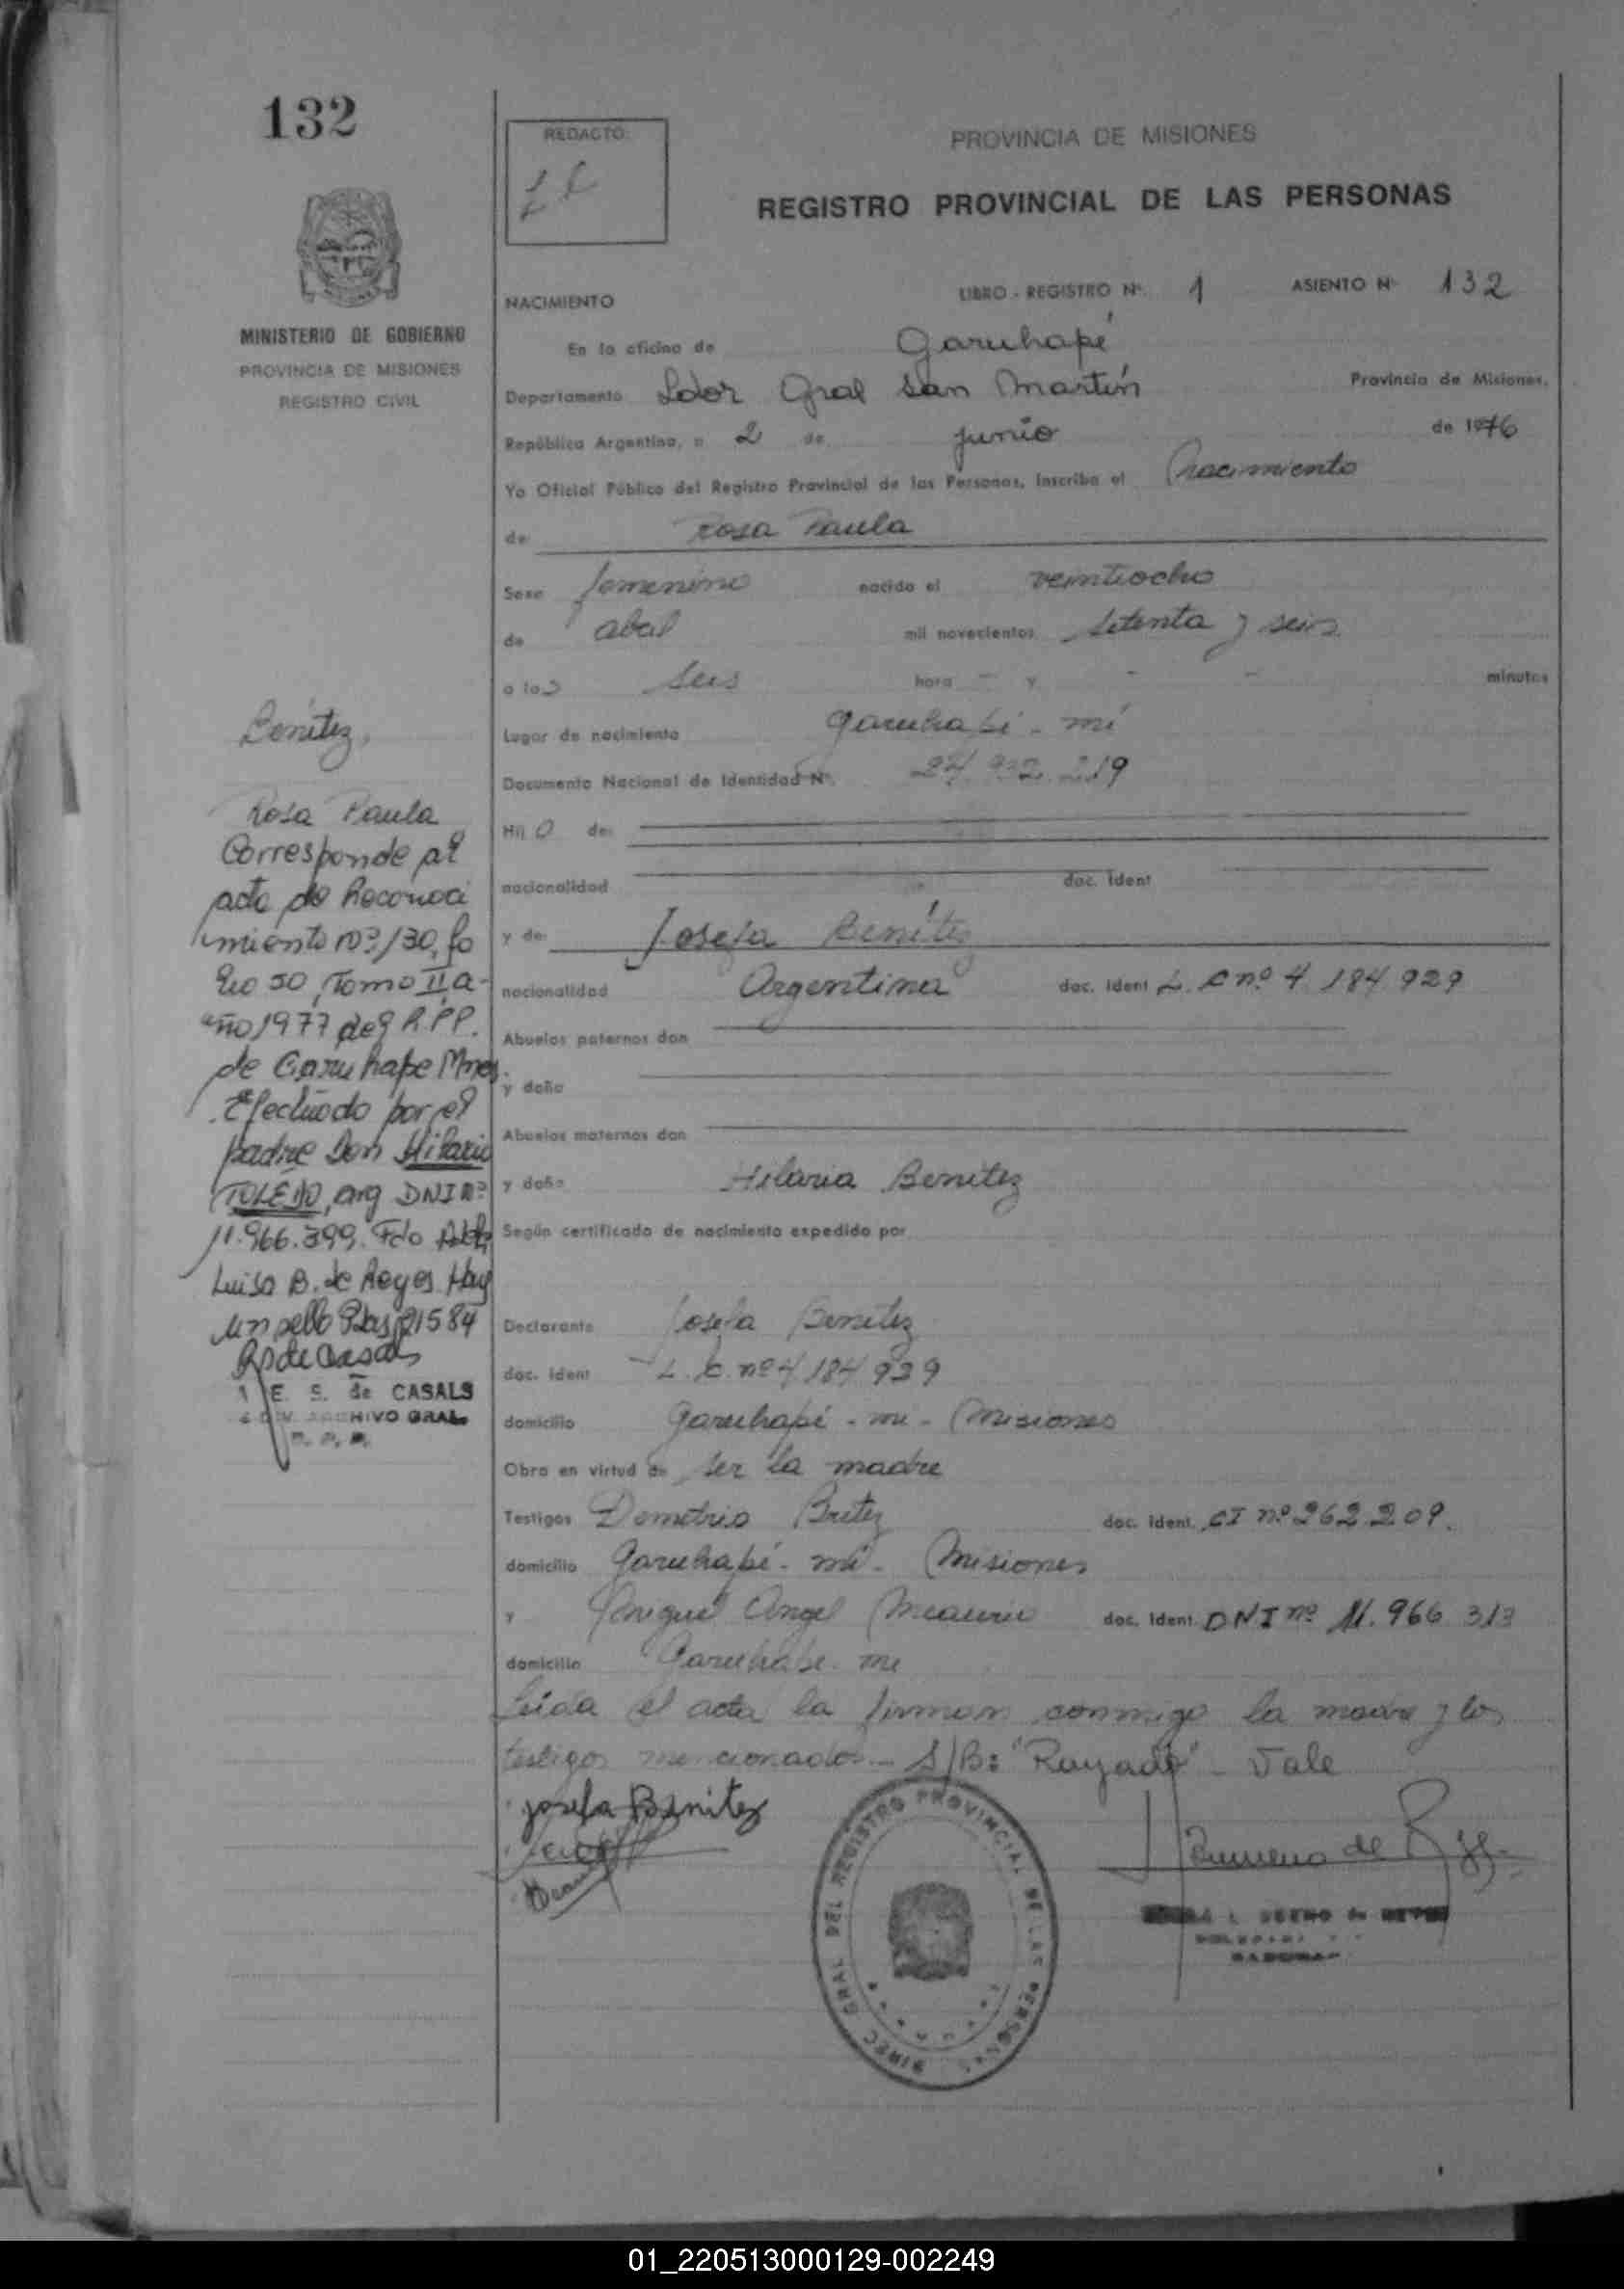 132
MINISTERIO DE GOBIERNO
PROVINCIA DE MISIONES
REGISTRO CIVIL
Benítez,
Rosa Paula
Corresponde al
acta de Reconoci
miento nº 130, fo
lio 50, Tomo II a-
ño 1977 del R.P.P.
de Garuhape Mnes.
Efectuado por el
padre Don Hilario
TOLEDO, arg DNI nº
11.966.399. Fdo
Luisa B. de Reyes. Hay
un sello Pdas 21584
E. S. de CASALS
DIV. ARCHIVO GRAL.
R. P. P.
REDACTO:
PROVINCIA DE MISIONES
REGISTRO PROVINCIAL DE LAS PERSONAS
NACIMIENTO LIBRO - REGISTRO Nº. 1 ASIENTO Nº 132
En la oficina de Garuhapé
Departamento Ldor Gral San Martín Provincia de Misiones,
República Argentina, a 2 de junio de 1976
Yo Oficial Público del Registro Provincial de las Personas, Inscribo el Nacimiento
de Rosa Paula
Sexo femenino nacido el veintiocho
de abril mil novecientos setenta y seis
a las seis hora - y - - minutos
Lugar de nacimiento Garuhapé - mí
Documento Nacional de Identidad Nº. 24.932.219
Hij o de:
nacionalidad doc. Ident
y de: Josefa Benítez
nacionalidad Argentina doc. Ident L. C nº 4 184 929
Abuelos paternos don
y doña
Abuelos maternos don
y doña Hilaria Benítez
Según certificado de nacimiento expedido por
Declarante Josefa Benítez
doc. Ident L. C. nº 4 184 929
domicilio Garuhapé - mí - Misiones
Obra en virtud de ser la madre
Testigos Demetrio Britez doc. Ident. CI nº 262.209.
domicilio Garuhapé - mí - Misiones
y Miguel Angel doc. Ident. DNI nº 11.966 313
domicilio Garuhapé - mí
Leida el acta la firman conmigo la madre y los
testigos mencionados.- S/B: "Rayado" - Vale
Josefa Benitez
DIREC GRAL DEL REGISTRO PROVINCIAL DE LAS PERSONAS
01_220513000129-002249